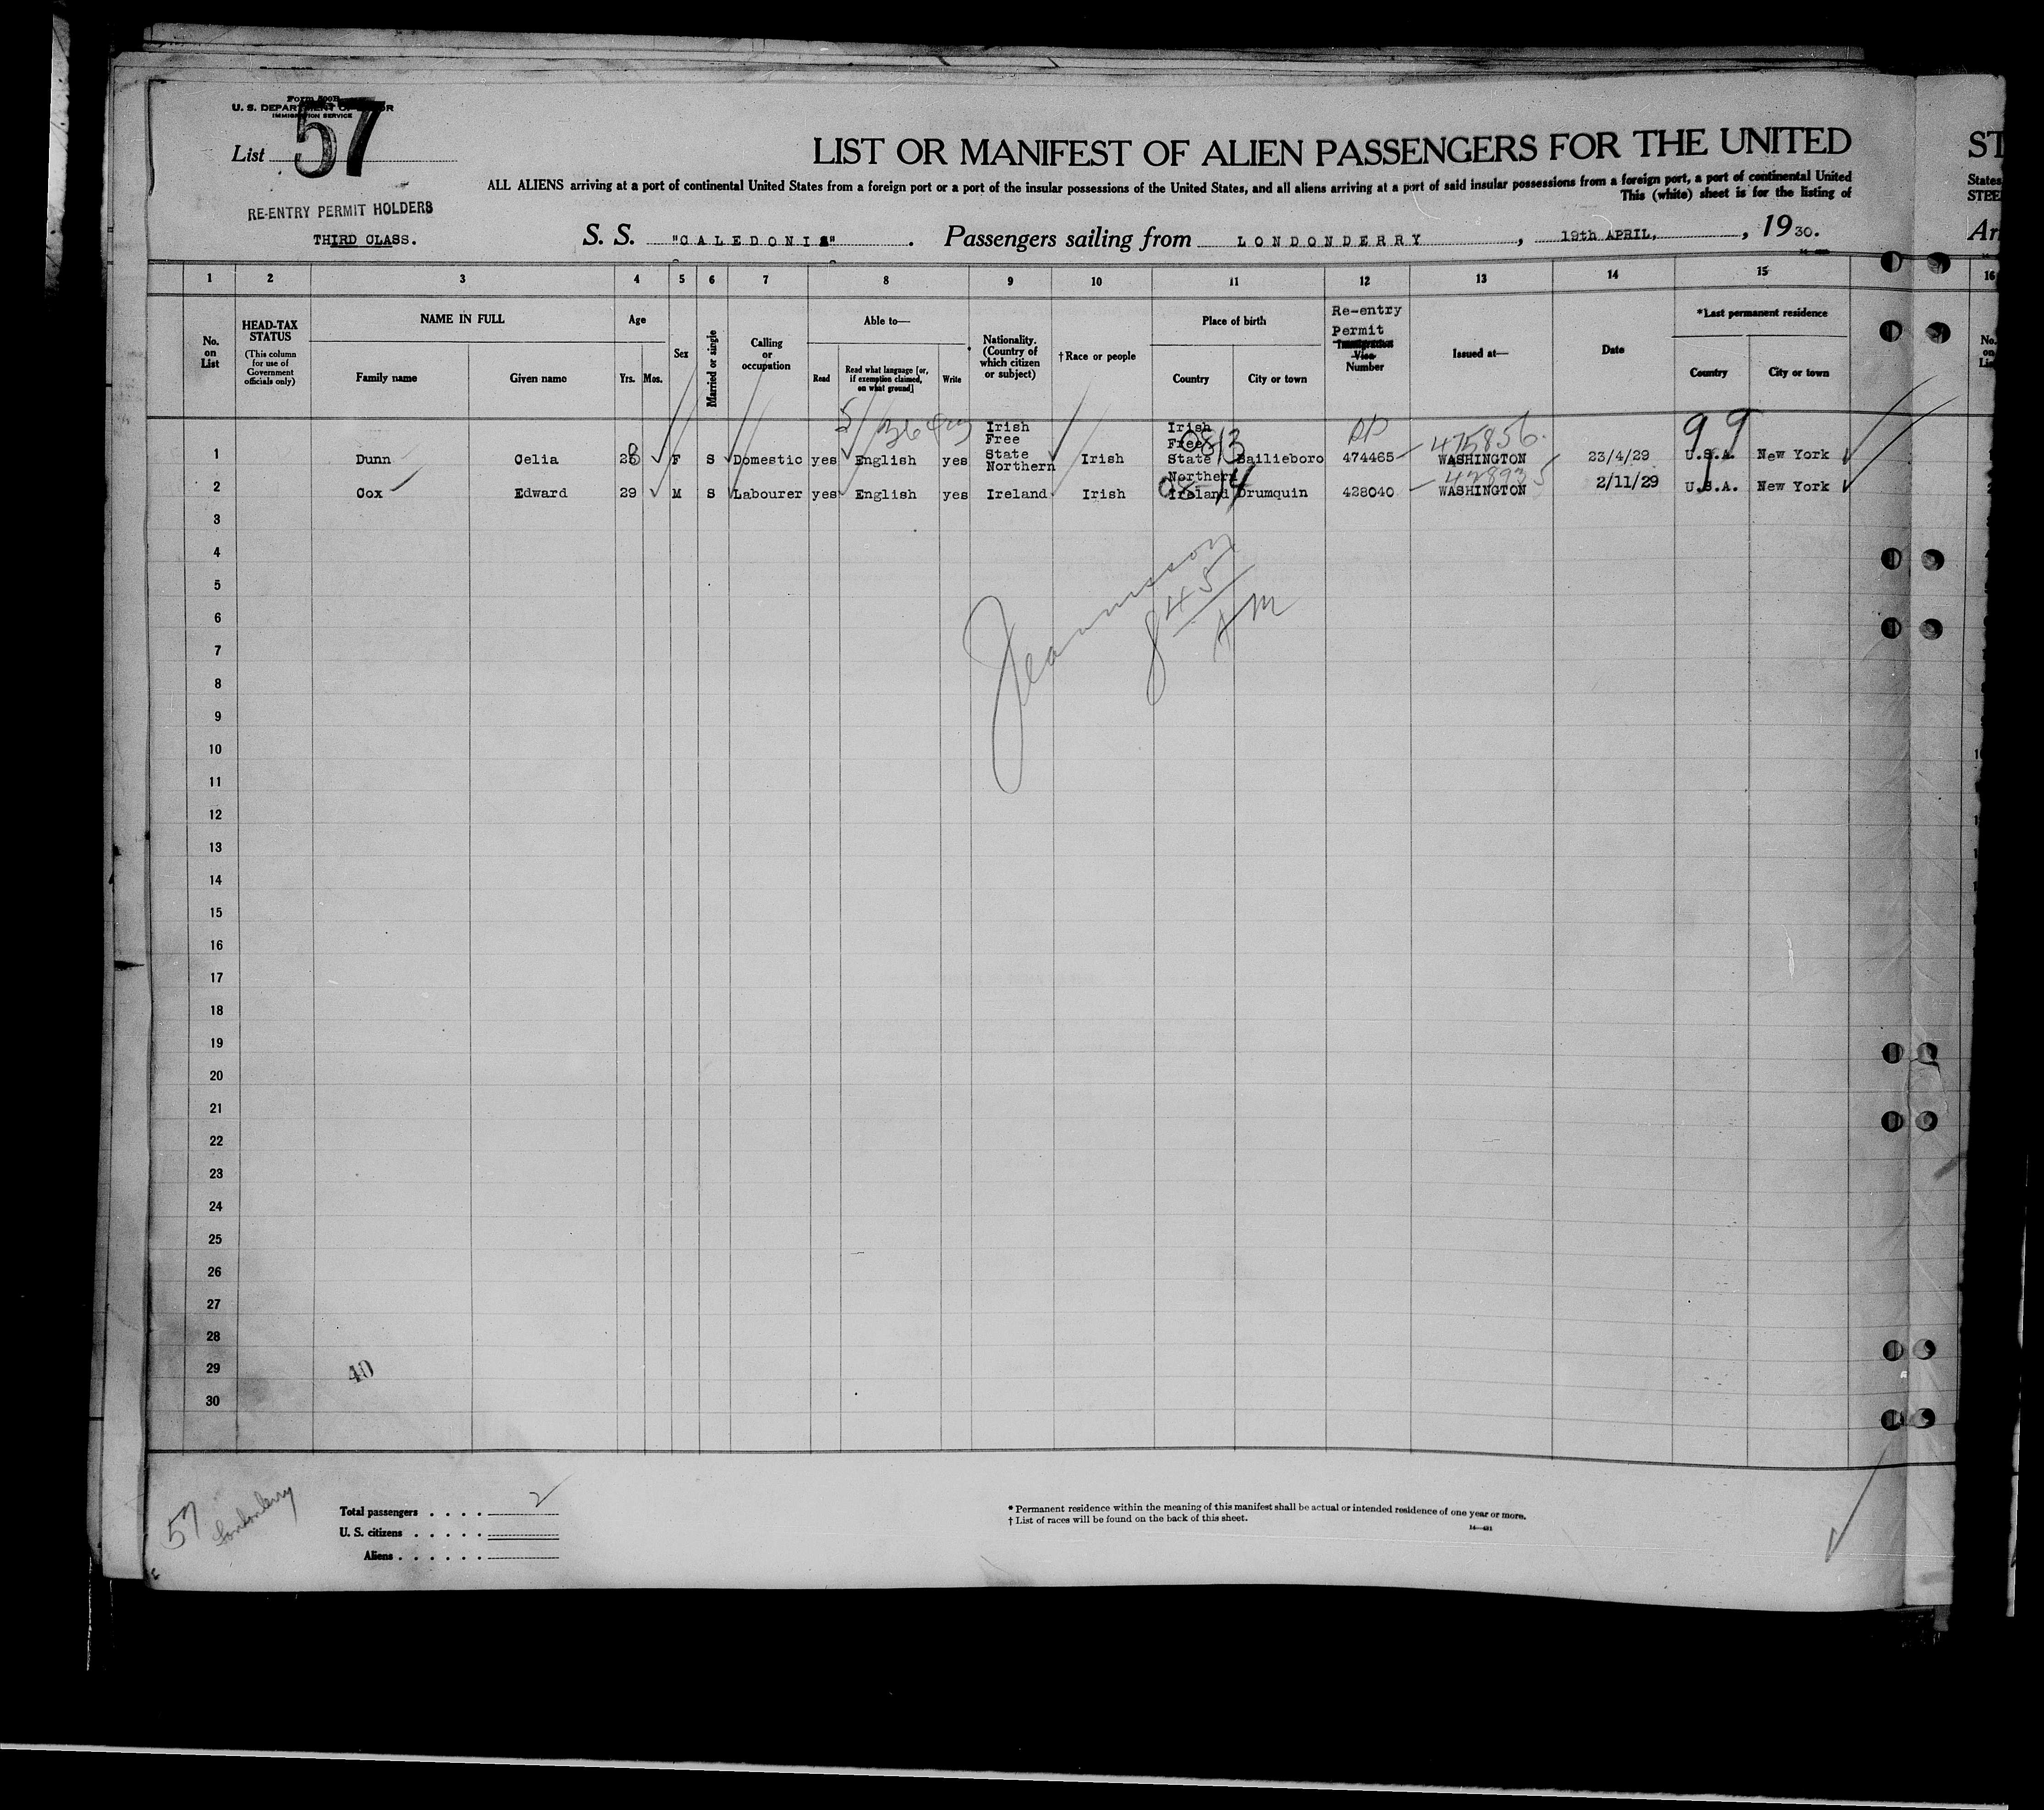 Form 500B
U. S. DEPARTMENT OF LABOR
IMMIGRATION SERVICE
List 57
RE-ENTRY PERMIT HOLDERS
THIRD CLASS.
LIST OR MANIFEST OF ALIEN PASSENGERS FOR THE UNITED ST
ALL ALIENS arriving at a port of continental United States from a foreign port or a port of the insular possessions of the United States, and all aliens arriving at a port of said insular possessions from a foreign port, a port of continental United States
This (white) sheet is for the listing of STEE
S. S. "CALEDONIA". Passengers sailing from LONDONDERRY, 19th APRIL, 1930. Ar
1 2 3 4 5 6 7 8 9 10 11 12 13 14 15 16
No. on List
HEAD-TAX STATUS (This column for use of Government officials only)
NAME IN FULL
Family name Given name
Age
Yrs. Mos.
Sex
Married or single
Calling or occupation
Able to—
Read
Read what language [or, if exemption claimed, on what ground]
Write
Nationality. (Country of which citizen or subject)
†Race or people
Place of birth
Country City or town
Re-entry Permit Immigration Visa Number
Issued at—
Date
*Last permanent residence
Country City or town
No. on Lis
1 Dunn Celia 28 F S Domestic yes English yes Irish Free State Irish Irish Free State Bailieboro 474465 WASHINGTON 23/4/29 U.S.A. New York
0813 475856. 99
2 Cox Edward 29 M S Labourer yes English yes Northern Ireland Irish Northern Ireland Drumquin 428040 WASHINGTON 2/11/29 U.S.A. New York
08-14
3
4
5
6
7
8
9
10
11
12
13
14
15
16
17
18
19
20
21
22
23
24
25
26
27
28
29
30
845
AM
40
57
Londonderry
Total passengers . . . . 2
U. S. citizens . . . . .
Aliens . . . . . .
* Permanent residence within the meaning of this manifest shall be actual or intended residence of one year or more.
† List of races will be found on the back of this sheet.
14—431